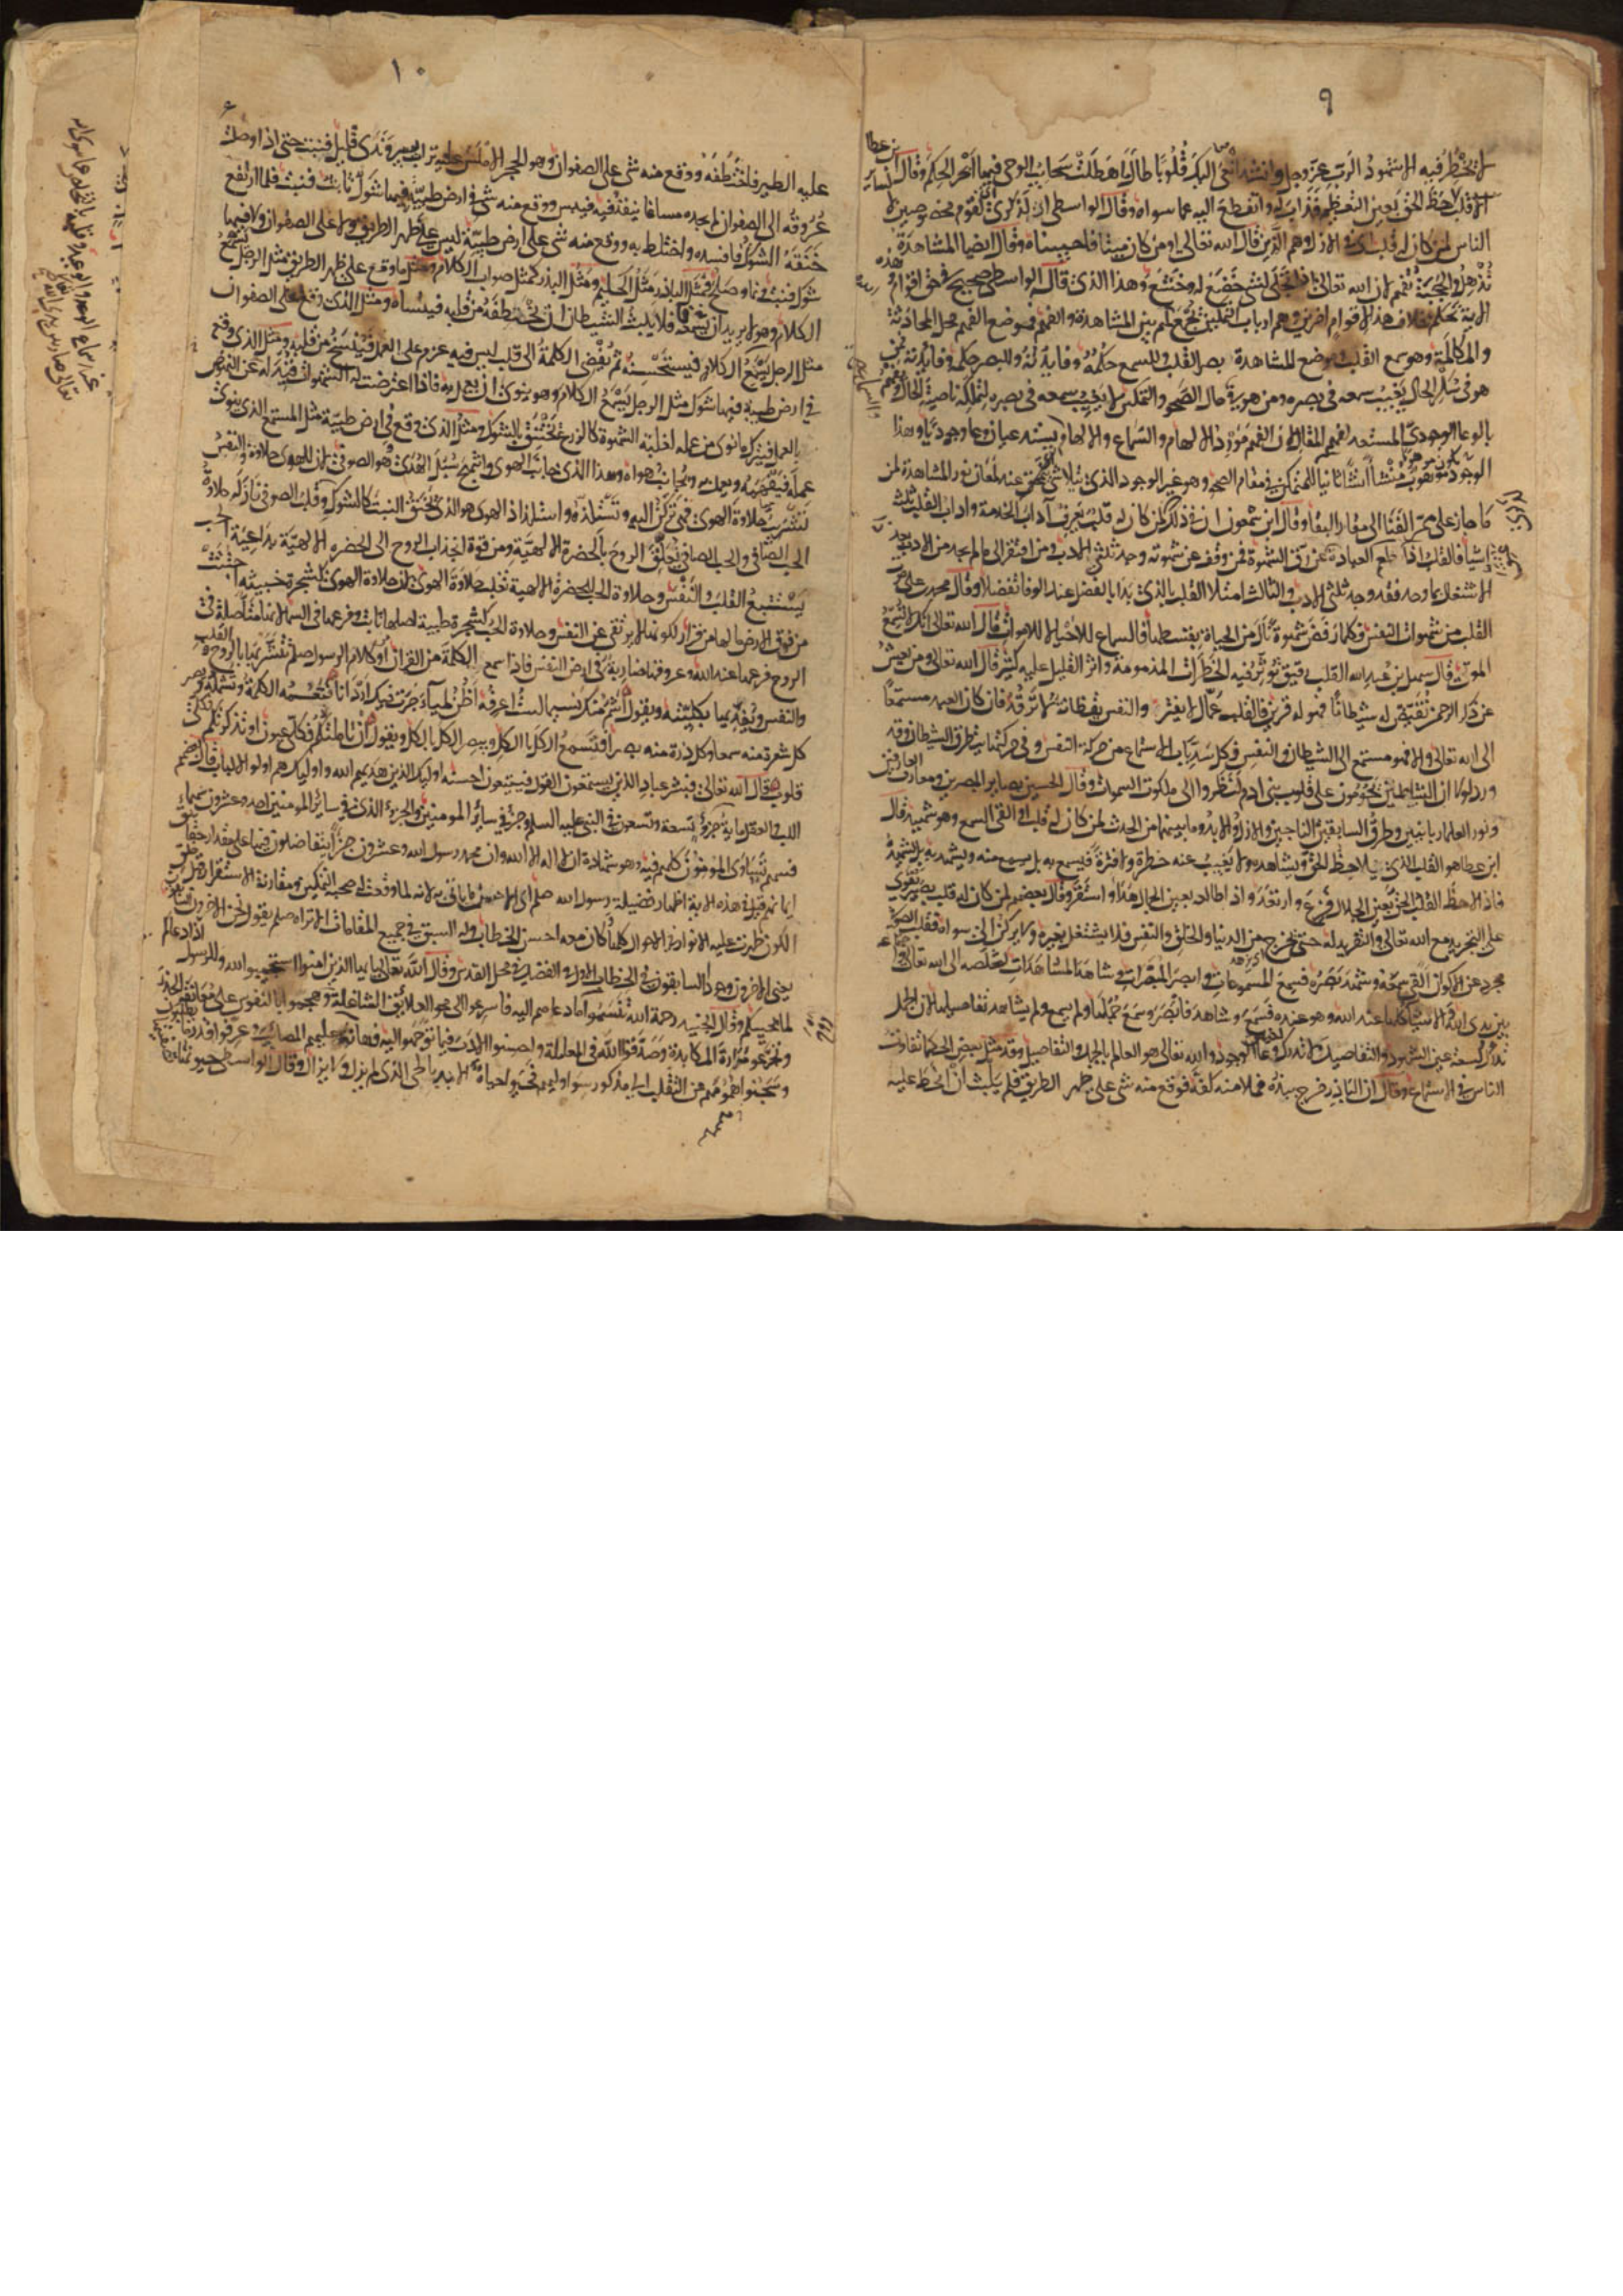 ٩
لا يخطر فيه الا شهود الرب عز وجل وانشد انعى اليك قلوبا طال ما هطلت سحائب الوحى فيها ابحر الحكم وقال ابن عطا
قلب لاحظ الحق بعين التعظيم فذاب له وانقطع اليه عما سواه وقال الواسطى ان لذكرى لقوم مخصوصين لا لسائر
الناس لمن كان له قلب فى الازل وهم الذين قال الله تعالى او من كان ميتا فاحييناه وقال ايضا المشاهدة
تذهل والحجبة تفهم لان الله تعالى اذا تجلى لشى خضع له وخشع وهذا الذى قال الواسطى صحيح فى حق اقوام وهذه
الاية تحكم بخلاف هذا لاقوام اخرين وهم ارباب التمكين يجمع لهم بين المشاهدة والفهم فموضع الفهم محل المحادثة
والمكالمة وهو سمع القلب وموضع المشاهدة بصر القلب وللسمع حكمة وفايدة وللبصر حكمة وفايدة فمن
هو فى سكر الحال يغيب سمعه فى بصره ومن هو فى حال الصحو والتمكين لا يغيب سمعه فى بصره لتملكه ناصية الحال ويفهم
بالوعا الوجودى المستعد لفهم المقال لان الفهم مورد الالهام والسماع والالهام يستدعيان وعا وجوديا وهذا
الوجود موهوب منشا انشا ثانيا للمتمكن فى مقام الصحو وهو غير الوجود الذى يتلاشى عند لمعان نور المشاهدة لمن
جاز على ممر الفنا الى مقار البقا وقال ابن سمعون ان فى ذلك لذكرى لمن كان له قلب يعرف آداب الخدمة واداب القلب وهى ثلثة
اشيا فالقلب اذا طعم العبادة عتق من رق الشهوة فمن وقف عن شهوته وجد ثلث الادب ومن افتقر الى ما لم يجد من الادب بعد
الاشتغال بما وجد فقد وجد ثلثى الادب والثالث امتلا القلب بالذى بدا بالفضل عند الوفا تفضلا وقال محمد بن على موت
القلب من شهوات النفس فكلما رفض شهوة نال من الحياة بقسطها فالسماع للاحيا لا للاموات قال الله تعالى انك لا تسمع
الموتى قال سهل بن عبد الله القلب رقيق تؤثر فيه الخطرات المذمومة واثر القليل عليه كثير قال الله تعالى ومن يعش
عن ذكر الرحمن نقيض له شيطانا فهو له قرين فالقلب عمال لا يفتر والنفس يقظانة لا ترقد فان كان العبد مستمعا
الى الله تعالى والا فهو مستمع الى الشيطان والنفس فكل شى سد باب الاستماع فمن حركة النفس وفى حركتها يتطرق الشيطان وقد
ورد لولا ان الشياطين يحومون على قلوب بنى ادم لنظروا الى ملكوت السموات وقال الحسين بصاير المبصرين ومعارف العارفين
ونور العلما الربانيين وطرق السابقين الناجين والازل والابد وما بينهما من الحدث لمن كان له قلب او القى السمع وهو شهيد قال
ابن عطا هو القلب الذى يلاحظ الحق ويشاهده ولا يغيب عنه خطرة ولا فترة فيسمع به بل يسمع منه ويشهد به بل يشهده
فاذا لاحظ القلب الحق بعين الجلال فزع وارتعد واذا طالعه بعين الجمال هدأ واستقر وقال بعضهم لمن كان له قلب بصير يقوى
على التجريد مع الله تعالى والتفريد له حتى يخرج من الدنيا والخلق والنفس فلا يشتغل بغيره ولا يركن الى سواه فقلب الصوفى
مجرد عن الاكوان القى سمعه وشهد بصره فسمع المسموعات وابصر المبصرات وشاهد المشاهدات لتخلصه الى الله تعالى واجتماعه
بين يدى الله والاشيا كلها عند الله وهو عنده فسمع وشاهد فابصر وسمع جملها ولم يسمع ولم يشاهد تفاصيلها لان الجمل
تدرك لسعة عين الشهود والتفاصيل لا تدرك لضيق وعا الوجود والله تعالى هو العالم بالجمل والتفاصيل وقد مثل بعض الحكما تفاوت
الناس فى الاستماع وقال ان الباذر خرج ببذره فملا منه كفه فوقع منه شى على ظهر الطريق فلم يلبث ان انحط عليه
١٠
عليه الطير فاختطفه ووقع منه شى على الصفوان وهو الحجر الاملس عليه تراب يسير وندى قليل فنبت حتى اذا وصلت
عروقه الى الصفوان لم يجد مساغا ينفذ فيه فيبس ووقع منه شى فى ارض طيبة فيها شوك نابت فنبت فلما ارتفع
خنقه الشوك فافسده واختلط به ووقع منه شى على ارض طيبة ليس على ظهر الطريق ولا على الصفوان ولا فيها
شوك فنبت ونما وصلح فمثل الباذر مثل الحكيم ومثل البذر كمثل صواب الكلام ومثل ما وقع على ظهر الطريق مثل الرجل يسمع
الكلام وهو لا يريد ان يسمعه فلا يلبث الشيطان ان يختطفه من قلبه فينساه ومثل الذى وقع على الصفوان
مثل الرجل يسمع الكلام فيستحسنه ثم يفضى الكلمة الى قلب ليس فيه عزم على العمل فينسخ من قلبه ومثل الذى وقع
فى ارض طيبة فيها شوك مثل الرجل يسمع الكلام وهو ينوى ان يعمل به فاذا اعترضت له الشهوات قيدته عن النهوض
بالعمل فيترك ما نوى من عمله لغلبة الشهوة كالزرع يختنق بالشوك ومثل الذى وقع فى ارض طيبة مثل المستمع الذى ينوى
عمله فيتفهمه ويعمل به ويجانب هواه وهذا الذى جانب الهوى وانتهج سبل الهدى هو الصوفى لان للهوى حلاوة والنفس
تتشرب حلاوة الهوى فهى تركن اليه وتستلذه واستلذاذ الهوى هو الذى يخنق النبت كالشوك وقلب الصوفى نازله حلاوة
الحب الصافى والحب الصافى تعلق الروح بالحضرة الالهية ومن قوة انجذاب الروح الى الحضرة الالهية بداعية الحب
يستتبع القلب والنفس وحلاوة الحب للحضرة الالهية تغلب حلاوة الهوى لان حلاوة الهوى كشجرة خبيثة اجتثت
من فوق الارض ما لها من قرار لكونها لا ترتقى عن النفس وحلاوة الحب كشجرة طيبة اصلها ثابت وفرعها فى السما لانها متاصلة فى
الروح فرعها عند الله وعروقها ضاربة فى ارض النفس فاذا سمع الكلمة من القران او كلام الرسول صلم يتشربها بالروح والقلب
والنفس ويفديها بكليته ويقول اشم منك نسيما لست اعرفه اظن لمياء جرت فيك اردانا فتعمه الكلمة وتشمله وتصير
كل شعرة منه سمعا وكل ذرة منه بصرا فيسمع الكل بالكل ويبصر الكل بالكل ويقول ان تاملتكم فكلى عيون او تذكرتكم فكلى
قلوب قال الله تعالى فبشر عباد الذين يستمعون القول فيتبعون احسنه اوليك الذين هديهم الله واوليك هم اولو الالباب قال بعضهم
اللب والعقل ماية جزؤ تسعة وتسعون فى النبى عليه السلم وجزؤ فى ساير المومنين والجزؤ الذى فى ساير المومنين احد وعشرون سهما
فسهم يتساوى المومنون كلهم فيه وهو شهادة ان لا اله الا الله وان محمد رسول الله وعشرون جزا يتفاضلون فيها على مقدار حقايق
ايمانهم قيل فى هذه الاية اظهار فضيلة رسول الله صلم اى الاحسن ما ياتى به لانه لما وقعت له صحبة التمكين ومقارنة الاستقرار قبل خلق
الكون ظهرت عليه الانوار فى الاحوال كلها وكان معه احسن الخطاب وله السبق فى جميع المقامات الا تراه صلم يقول نحن الاخرون السابقون
يعنى الاخرون وجودا السابقون فى الخطاب الاول والفضل فى محل القدس وقال الله تعالى يا ايها الذين امنوا استجيبوا لله وللرسول اذا دعاكم
لما يحييكم وقال الجنيد رحمة الله تنسموا روح ما دعاهم اليه فاسرعوا الى محو العلائق الشاغلة وهجموا بالنفوس على معانقة الحذر
وتجرعوا مرارة المكابدة وصدقوا الله فى المعاملة واحسنوا الادب فيما توجهوا اليه وهانت عليهم المصائب وعرفوا قدر ما يطلبون
وسجنوا هممهم عن التلفت الى مذكور سوا وليهم فحيوا حياة الابد بالحى الذى لم يزل ولا يزال وقال الواسطى حيوتها